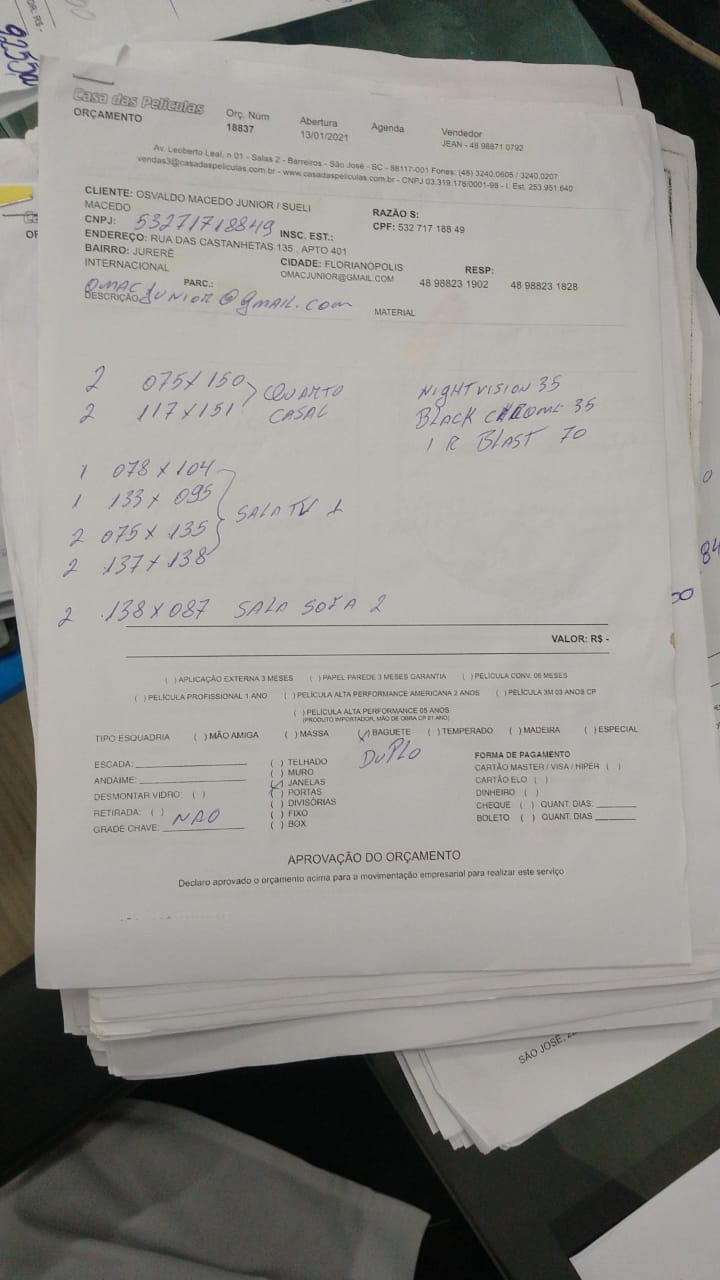 Casa das Películas
ORÇAMENTO
Orç. Núm
18837
Abertura
13/01/2021
Agenda
Vendedor
JEAN - 48 98871 0792
Av. Leoberto Leal, n 01 - Salas 2 - Barreiros - São José - SC - 88117-001 Fones: (48) 3240.0606 / 3240.0207
vendas3@casadaspeliculas.com.br - www.casadaspeliculas.com.br - CNPJ 03.319.178/0001-98 - I. Est. 253.951.640
CLIENTE: OSVALDO MACEDO JUNIOR / SUELI
MACEDO
RAZÃO S:
CNPJ: 53271718849 INSC. EST.:
CPF: 532 717 188 49
ENDEREÇO: RUA DAS CASTANHETAS 135 , APTO 401
BAIRRO: JURERÊ
INTERNACIONAL
CIDADE: FLORIANÓPOLIS
RESP:
OMACJUNIOR@GMAIL.COM
48 98823 1902 48 98823 1828
PARC.:
OMACJUNIOR@gmail.com
DESCRIÇÃO
MATERIAL
2 075X150
2 117X151
QUARTO
CASAL
NIGHTVISION 35
BLACK CHROME 35
I R BLAST 70
1 078X104
1 133X095
2 075X.135
2 .137X.138
SALA TV 1
2 .138X087 SALA SOFA 2
VALOR: R$ -
( ) APLICAÇÃO EXTERNA 3 MESES ( ) PAPEL PAREDE 3 MESES GARANTIA ( ) PELÍCULA CONV. 06 MESES
( ) PELÍCULA PROFISSIONAL 1 ANO ( ) PELÍCULA ALTA PERFORMANCE AMERICANA 2 ANOS ( ) PELÍCULA 3M 03 ANOS CP
( ) PELÍCULA ALTA PERFORMANCE 05 ANOS
(PRODUTO IMPORTADOR, MÃO DE OBRA CP 01 ANO)
TIPO ESQUADRIA ( ) MÃO AMIGA ( ) MASSA (X) BAGUETE ( ) TEMPERADO ( ) MADEIRA ( ) ESPECIAL
DUPLO
ESCADA:
ANDAIME:
DESMONTAR VIDRO: ( )
RETIRADA: ( ) NAO
GRADE CHAVE:
( ) TELHADO
( ) MURO
(X) JANELAS
( ) PORTAS
( ) DIVISÓRIAS
( ) FIXO
( ) BOX
FORMA DE PAGAMENTO
CARTÃO MASTER / VISA / HIPER ( )
CARTÃO ELO ( )
DINHEIRO ( )
CHEQUE ( ) QUANT. DIAS:
BOLETO ( ) QUANT. DIAS
APROVAÇÃO DO ORÇAMENTO
Declaro aprovado o orçamento acima para a movimentação empresarial para realizar este serviço